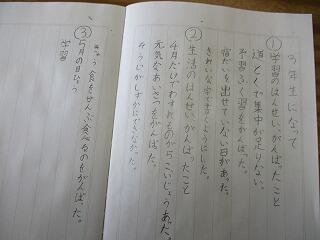 3年生になって
①学習のはんせい、がんばったこと
集中が足りない。
予習ふく習をがんばった。
宿だいを出せていない日があった。
きれいな字で書くようにした。
②生活のはんせいがんばったこと
4月だけでわすれものが こいじょうあった。
元気なあいさつをがんばった。
そうじがしずかにできなかった。
きゅう食をぜんぶ食べるのをがんばった。
③5月の
学習